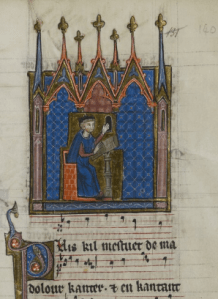 Puis kil mestuet de ma
dolour kanter. & en kantant